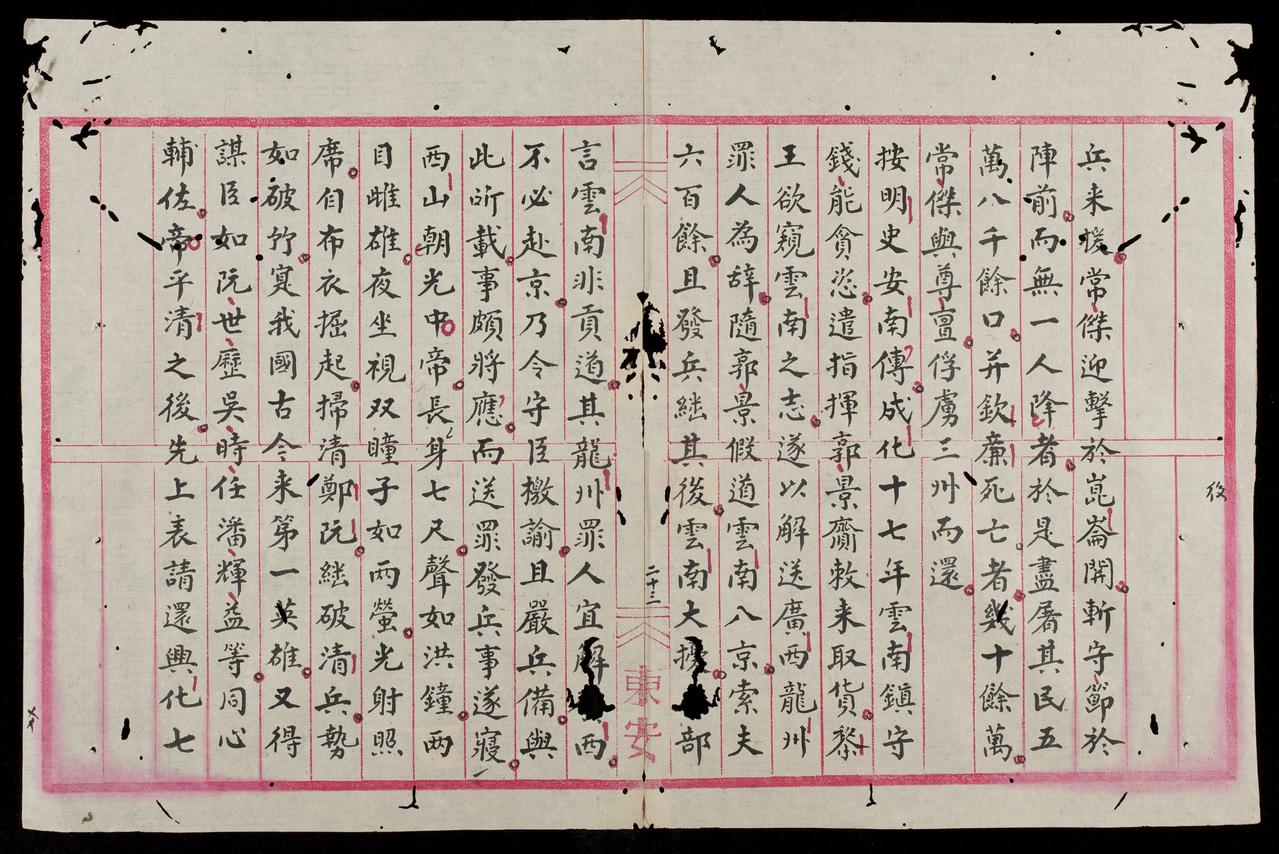 兵来援常傑迎擊於崑崙関斬守節於
陣前而無一人降者於是盡屠其民五
萬八千餘口并欽廉死亡者幾十餘萬
常傑與尊亶俘虜三州而還
按明史安南傳成化十七年雲南鎮守
錢能貪恣遣指揮郭景齎敕来取貨黎
王欲窺雲南之志遂以解送廣西龍州
罪人為辞隨郭景假道雲南八京索夫
六百餘且發兵継其後雲南大擾部
言雲南非貢道其龍州罪人宜解西
不必赴京乃令守臣檄諭且嚴兵備與
此所載事頗将應而送罪發兵事遂寝
西山朝光中帝長身七尺聲如洪鐘两
目雎雄夜坐視双瞳子如两螢光射照
席自布衣掘起掃清鄭阮継破清兵勢
如破竹寔我國古今来第一英雄又得
謀臣如阮世歷吳時任潘輝益等同心
輔佐帝平清之後先上表請還興化七
二十三
東安